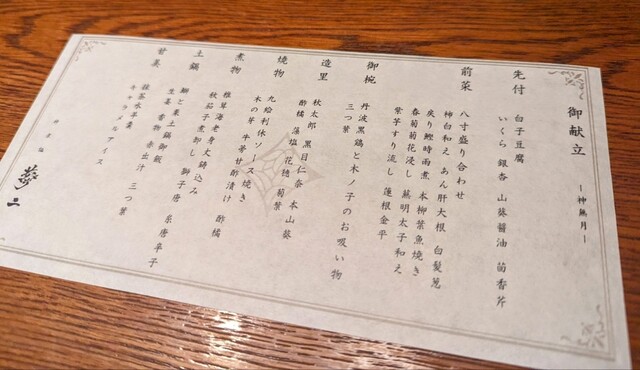 御献立 ー神無月ー
先付 白子豆腐
いくら 銀杏 山葵醤油 茴香芹
前菜 八寸盛り合わせ
柿白和え あん肝大根 白髪葱
戻り鰹時雨煮 本柳葉魚焼き
春菊菊花浸し 蕪明太子和え
紫芋すり流し 蓮根金平
御椀 丹波黒鶏と木ノ子のお吸い物
三つ葉
造里 秋太郎 黒目仁奈 本山葵
酢橘 藻塩 花穂 菊葉
焼物 九絵利休ソース焼き
木の芽 牛蒡甘酢漬け 酢橘
煮物 椎茸海老真丈鋳込み
秋茄子煮卸し 獅子唐 糸唐辛子
土鍋 鰤と栗土鍋御飯
生姜 香物 赤出汁 三つ葉
甘美 抹茶水羊羹
キャラメルアイス